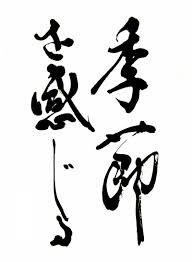 季節
を感じる